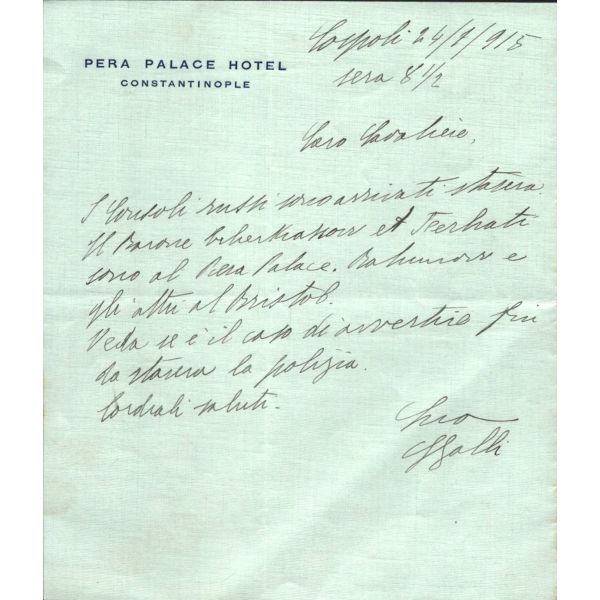 PERA PALACE HOTEL
CONSTANTINOPLE
Cospoli 24/1/915
sera 8 1/2
Caro Cavaliere,
I Consoli russi sono arrivati stasera.
Il Barone et
sono al Pera Palace. e
gli altri al Bristol.
Veda se è il caso di avvertire fin
da stasera la polizia.
Cordiali saluti.
Suo
GGalli